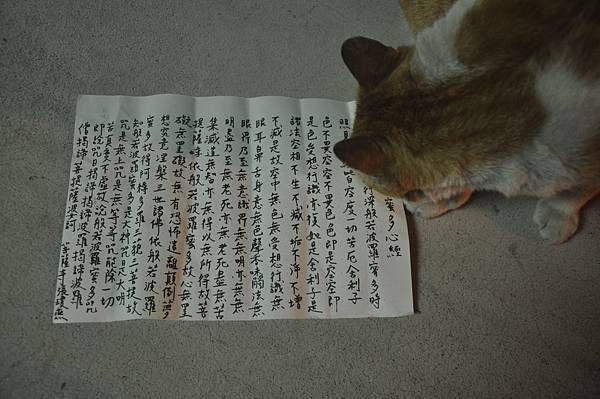 蜜多心經
深般若波羅蜜多時
照見 皆空度一切苦厄舍利子
色不異空空不異色色即是空空即
是色受想行識亦復如是舍利子是
諸法空相不生不滅不垢不淨不增
不減是故空中無色無受想行識無
眼耳鼻舌身意無色聲香味觸法無
眼界乃至無意識界無無明亦無無
明盡乃至無老死亦無老死盡無苦
集滅道無智亦無得以無所得故菩
提薩埵依般若波羅蜜多故心無罣
礙無罣礙故無有恐怖遠離顛倒夢
想究竟涅槃三世諸佛依般若波羅
蜜多故得阿耨多羅三藐三菩提故
知般若波羅蜜多是大神咒是大明
咒是無上咒是無等等咒能除一切
苦真實不虛故說般若波羅蜜多咒
即說咒曰揭諦揭諦波羅揭諦波羅
僧揭諦菩提薩婆訶